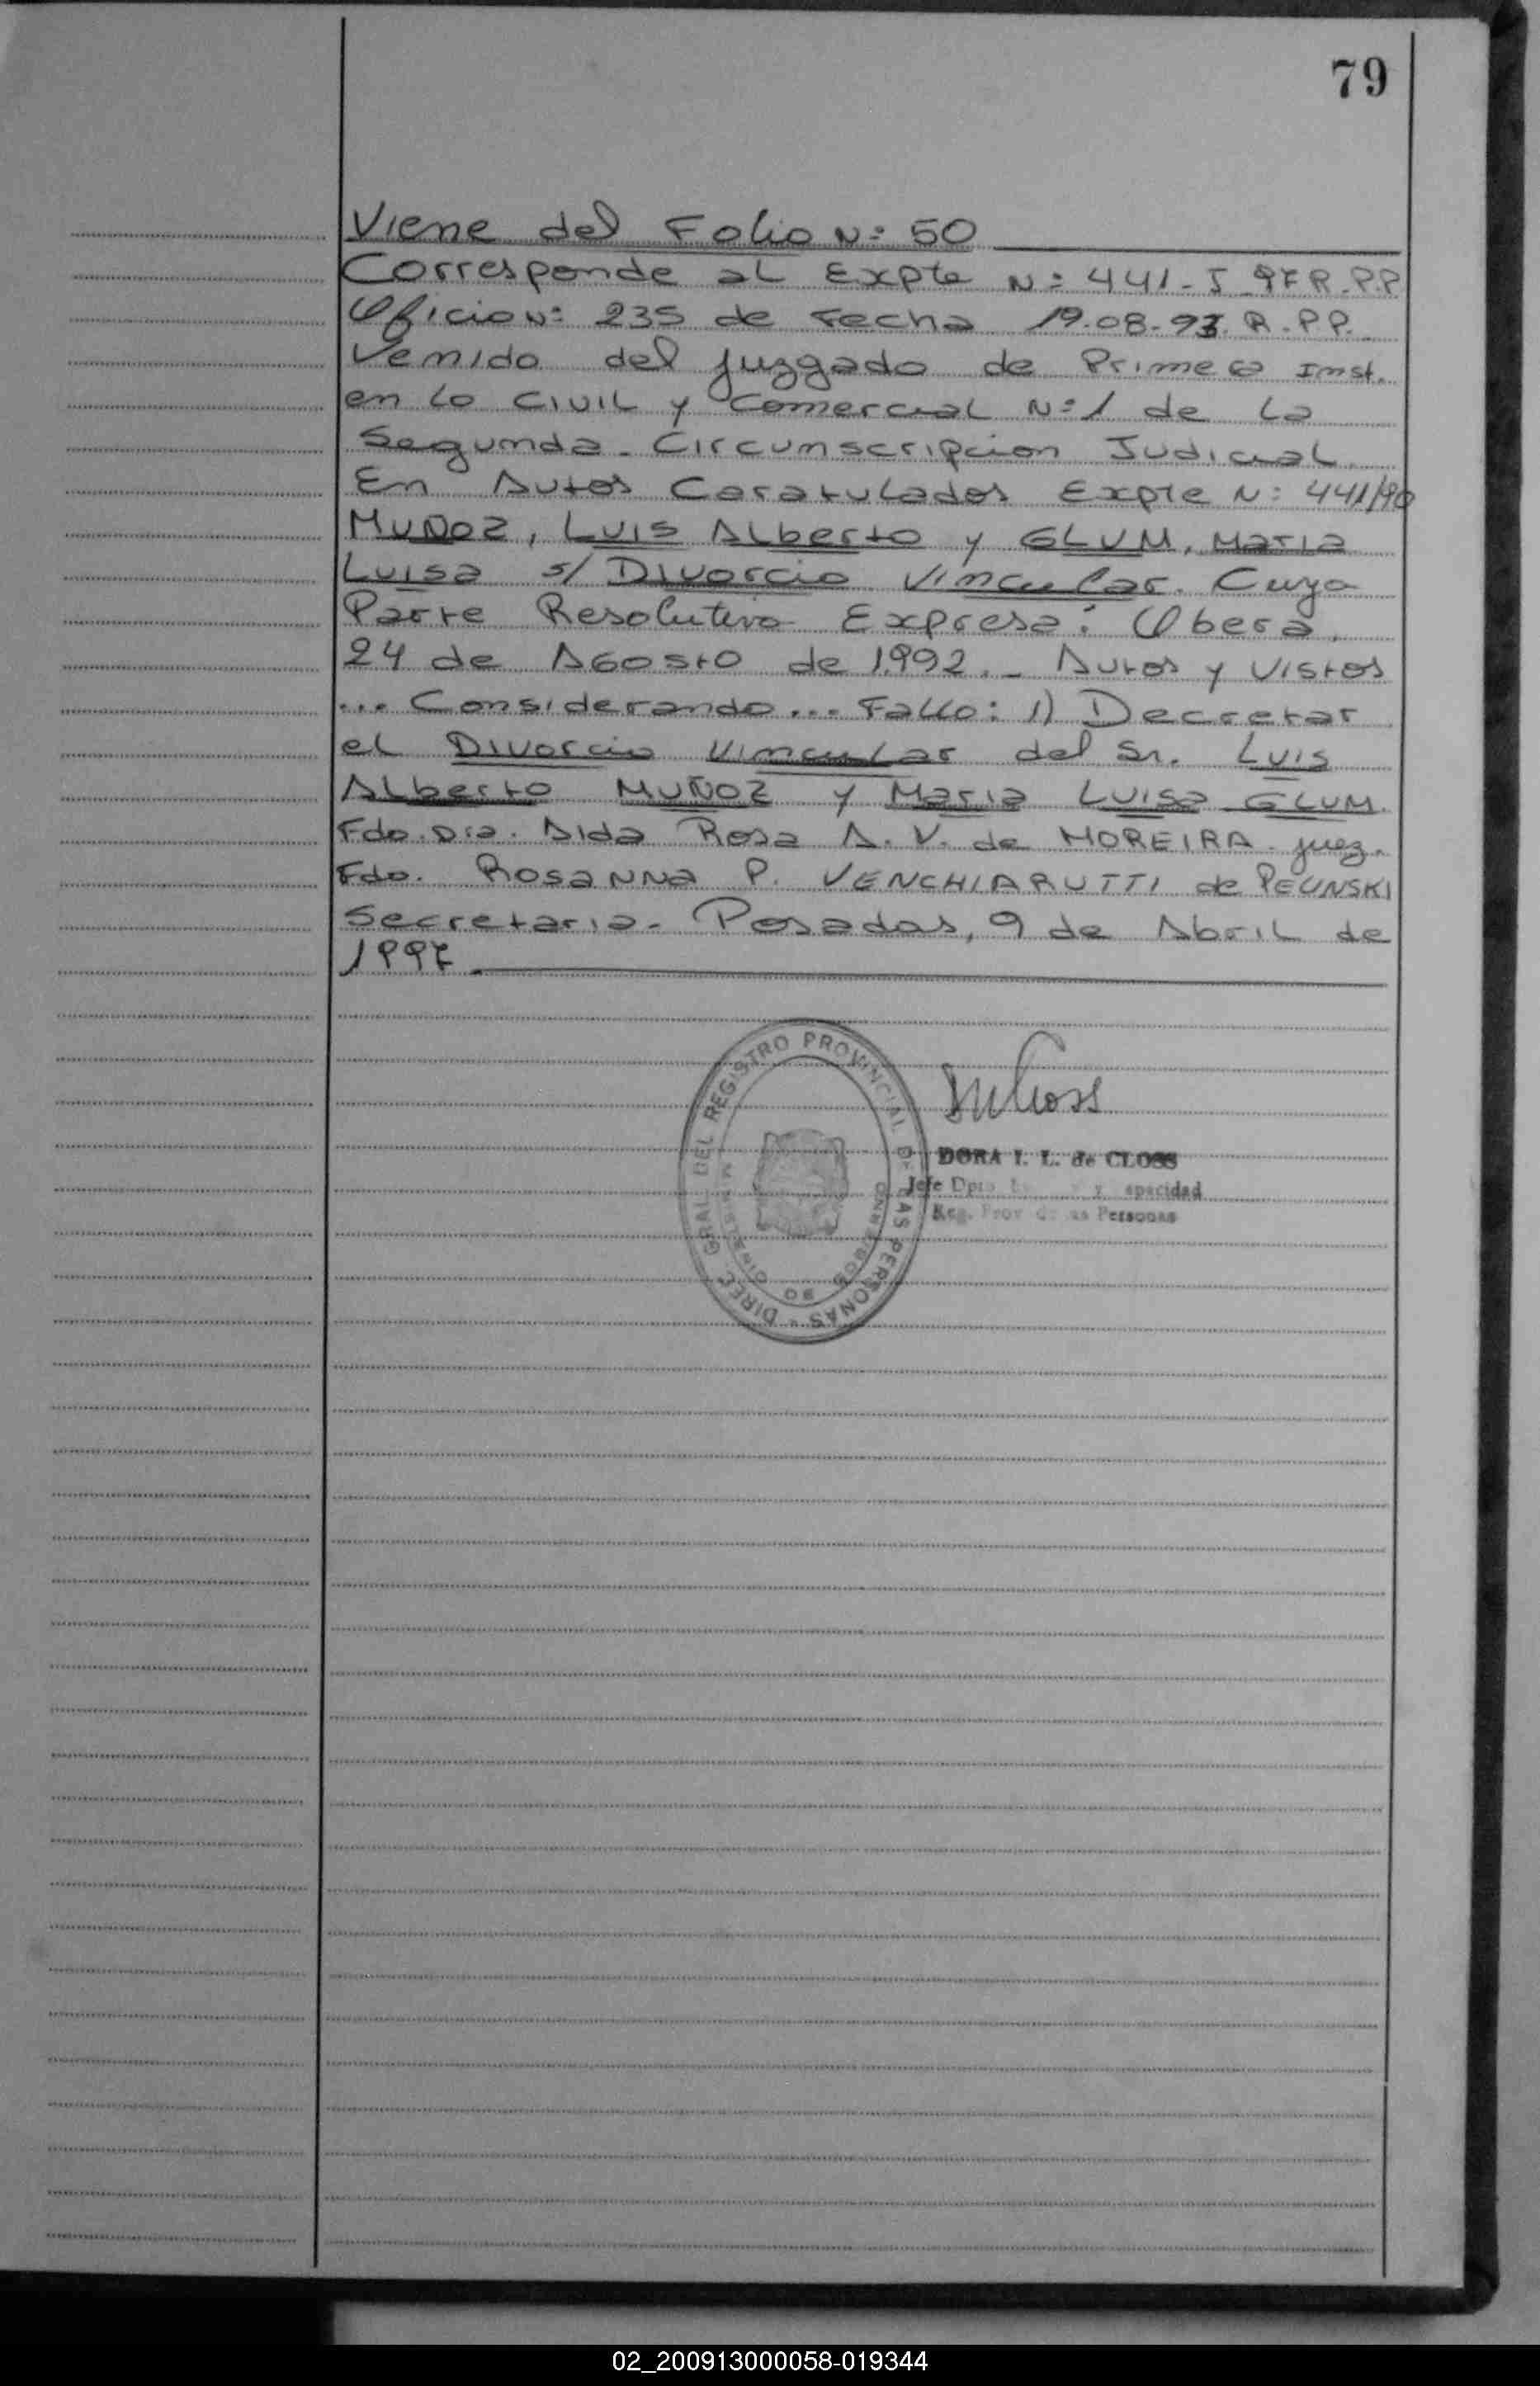 79
Viene del Folio Nº 50
Corresponde al Expte Nº 441-I-97 R.P.P
Oficio Nº 235 de Fecha 19.08.93. R.P.P.
Venido del juzgado de Primera Inst.
en lo Civil y Comercial Nº 1 de la
Segunda. Circunscripcion Judicial.
En Autos Caratulados Expte Nº 441/90
MUÑOZ, LUIS Alberto y GLUM, Maria
Luisa s/ Divorcio Vincular. Cuya
Parte Resolutiva Expresa: Obera,
24 de Agosto de 1.992.- Autos y Vistos
... Considerando... Fallo: 1) Decretar
el Divorcio Vincular del Sr. Luis
Alberto MUÑOZ y Maria LUISA GLUM.
Fdo. Dra. Aida Rosa A. V. de MOREIRA. juez.
Fdo. Rosanna P. VENCHIARUTTI de
Secretaria. Posadas, 9 de Abril de
1997
DIREC. GRAL. DEL REGISTRO PROVINCIAL DE LAS PERSONAS
DORA I. L. de CLOSS
Jefe Dpto. y apacidad
Reg. Prov de as Personas
02_200913000058-019344